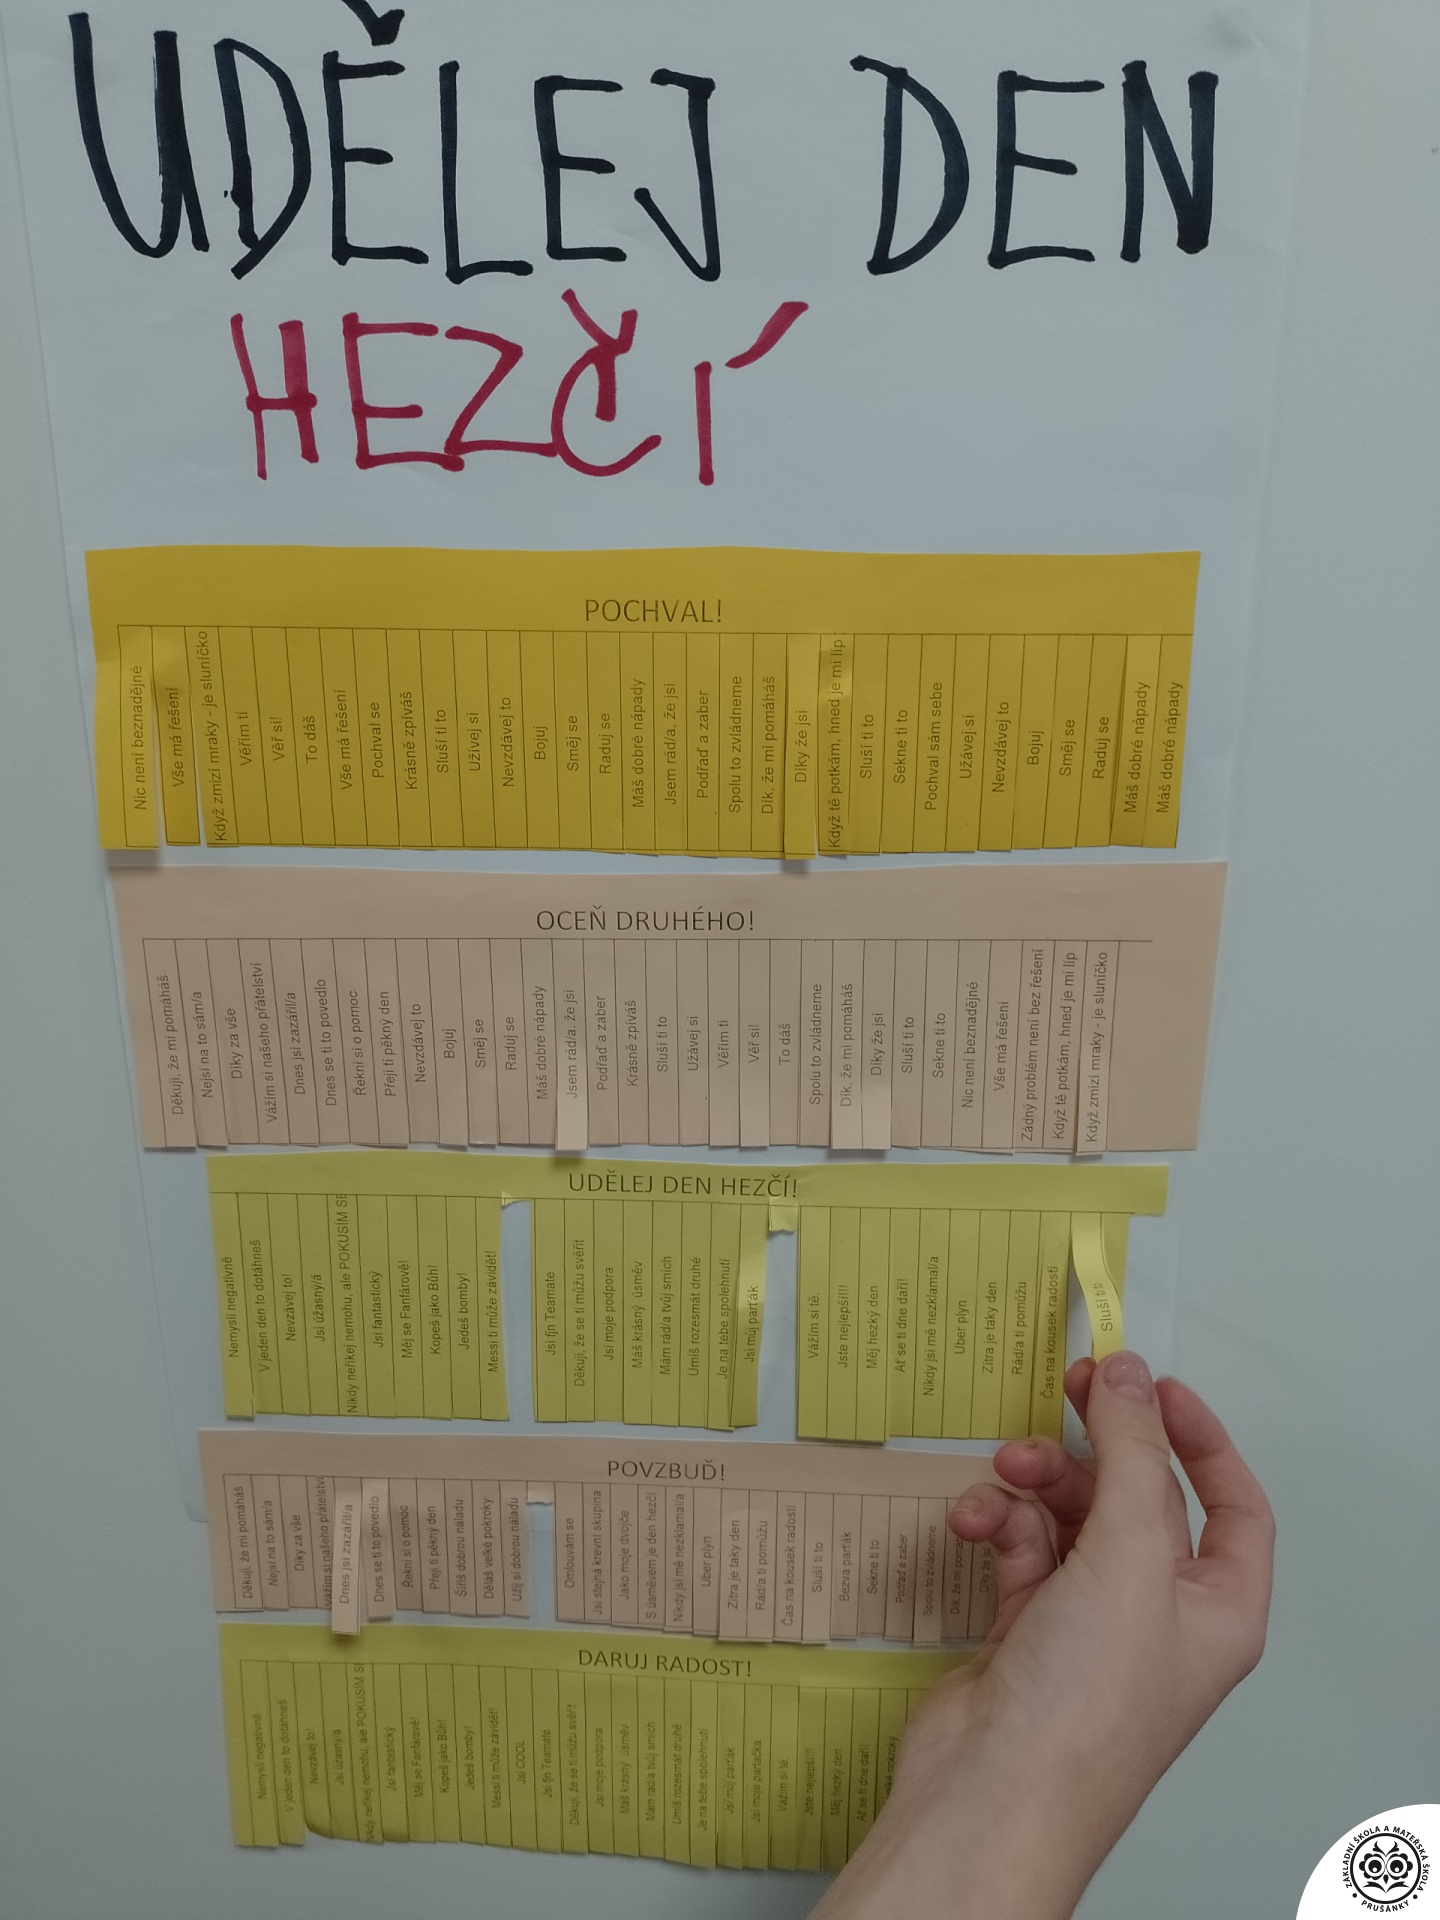 UDĚLEJ DEN
HEZČÍ
POCHVAL!
Nic není beznadějné
Vše má řešení
Když zmizí mraky - je sluníčko
Věřím ti
Věř si!
To dáš
Vše má řešení
Pochval se
Krásně zpíváš
Sluší ti to
Užívej si
Nevzdávej to
Bojuj
Směj se
Raduj se
Máš dobré nápady
Jsem rád/a, že jsi
Podřaď a zaber
Spolu to zvládneme
Dík, že mi pomáháš
Díky že jsi
Když tě potkám, hned je mi líp
Sluší ti to
Sekne ti to
Pochval sám sebe
Užávej si
Nevzdávej to
Bojuj
Směj se
Raduj se
Máš dobré nápady
Máš dobré nápady
OCEŇ DRUHÉHO!
Děkuji, že mi pomáháš
Nejsi na to sám/a
Díky za vše
Vážím si našeho přátelství
Dnes jsi zazářil/a
Dnes se ti to povedlo
Řekni si o pomoc
Přeji ti pěkný den
Nevzdávej to
Bojuj
Směj se
Raduj se
Máš dobré nápady
Jsem rád/a, že jsi
Podřaď a zaber
Krásně zpíváš
Sluší ti to
Užávej si
Věřím ti
Věř si!
To dáš
Spolu to zvládneme
Dík, že mi pomáháš
Díky že jsi
Sluší ti to
Sekne ti to
Nic není beznadějné
Vše má řešení
Žádný problém není bez řešení
Když tě potkám, hned je mi líp
Když zmizí mraky - je sluníčko
UDĚLEJ DEN HEZČÍ!
Nemysli negativně
V jeden den to dotáhneš
Nevzávej to!
Jsi úžasný/á
Nikdy neříkej nemohu, ale POKUSÍM SE
Jsi fantastický
Měj se Fanfárově!
Kopeš jako Bůh!
Jedeš bomby!
Messi ti může závidět!
Jsi fjn Teamate
Děkuji, že se ti můžu svěřit
Jsi moje podpora
Máš krásný úsměv
Mám rád/a tvůj smích
Umíš rozesmát druhé
Je na tebe spolehnutí
Jsi můj parťák
Vážím si tě.
Jste nejlepší!!!
Měj hezký den
Ať se ti dne daří!
Nikdy jsi mě nezklamal/a
Uber plyn
Zítra je taky den
Rád/a ti pomůžu
Čas na kousek radosti
Sluší ti
POVZBUĎ!
Děkuji, že mi pomáháš
Nejsi na to sám/a
Díky za vše
Vážím si našeho přátelství
Dnes jsi zazářil/a
Dnes se ti to povedlo
Řekni si o pomoc
Přeji ti pěkný den
Šíříš dobrou náladu
Děláš velké pokroky
Užij si dobrou náladu
Omlouvám se
Jsi stejná krevní skupina
Jako moje dvojče
S úsměvem je den hezčí
Nikdy jsi mě nezklamal/a
Uber plyn
Zítra je taky den
Rád/a ti pomůžu
Čas na kousek radosti
Sluší ti to
Bezva parťák
Sekne ti to
Podřaď a zaber
Spolu to zvládneme
Dík, že mi
Díky že
DARUJ RADOST!
Nemysli negativně
V jeden den to dotáhneš
Nevzávej to!
Jsi úžasný/á
Nikdy neříkej nemohu, ale POKUSÍM SE
Jsi fantastický
Měj se Fanfárově!
Kopeš jako Bůh!
Jedeš bomby!
Messi ti může závidět!
Jsi COOL
Jsi fjn Teamate
Děkuji, že se ti můžu svěřit
Jsi moje podpora
Máš krásný úsměv
Mám rád/a tvůj smích
Umíš rozesmát druhé
Je na tebe spolehnutí
Jsi můj parťák
Jsi moje parťačka
Vážím si tě.
Jste nejlepší!!!
Měj hezký den
Ať se ti dne daří!
pokroky
ZÁKLADNÍ ŠKOLA A MATEŘSKÁ ŠKOLA
• PRUŠÁNKY •